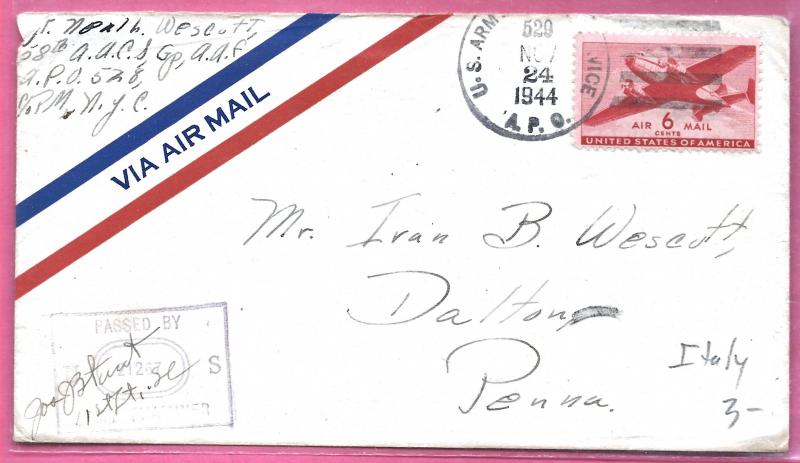 Wescott,
58th A.A.C.S. Gp, A.A.F.
A.P.O. 528,
P.M. N.Y.C.
VIA AIR MAIL
U.S. ARM VICE
529
NOV
24
1944
A.P.O.
AIR 6 MAIL
CENTS
UNITED STATES OF AMERICA
Mr. Ivan B. Wescott,
Dalton,
Penna.
Italy
3-
PASSED BY
21267 S
1st Lt.